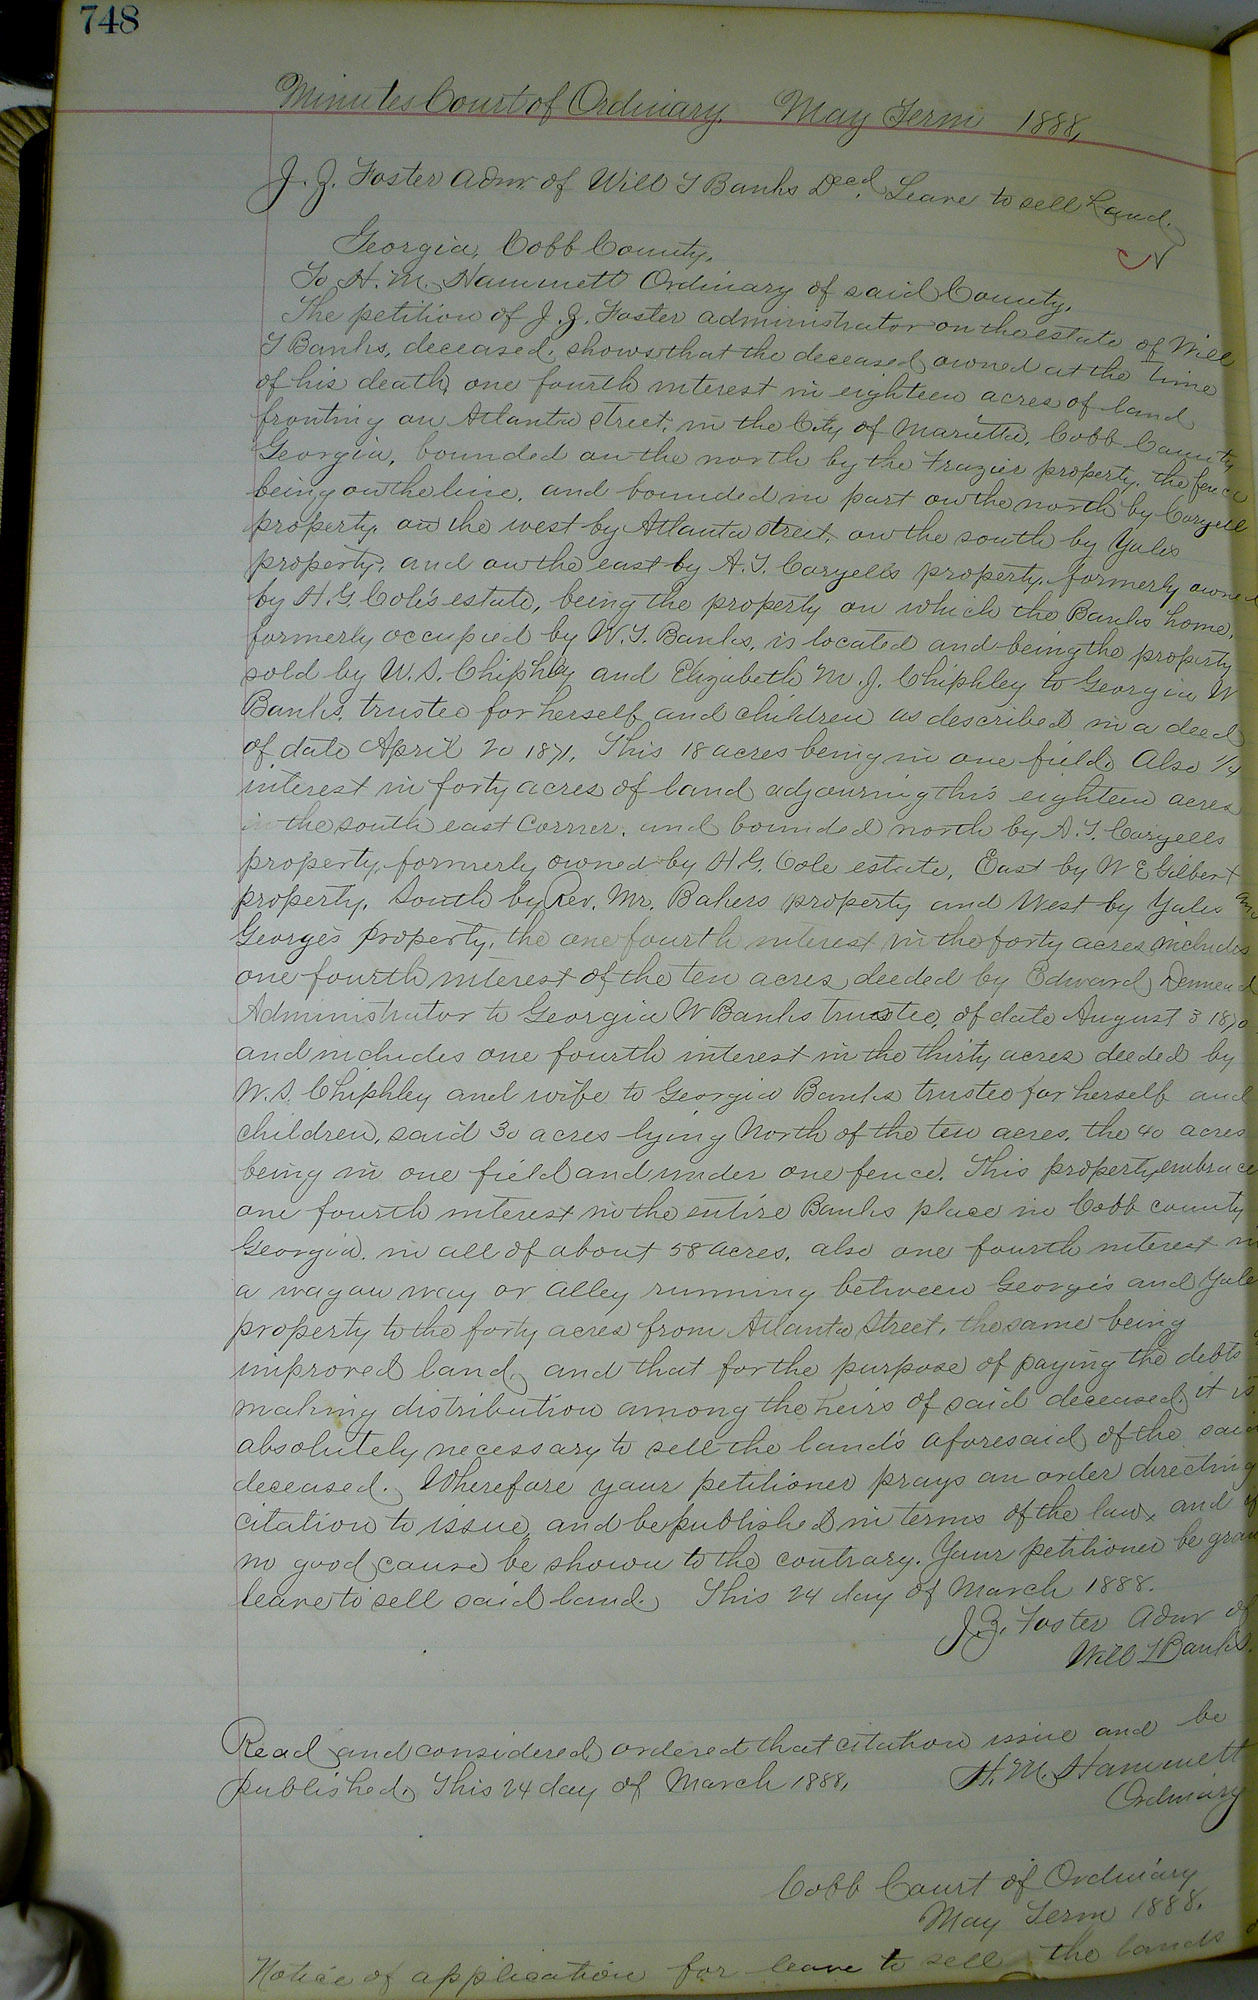 748
Minutes Court of Ordinary. May Term 1888,
J. Z. Foster admr of Will T Banks Decd, Leave to sell Land.
Georgia, Cobb County,
To H. M. Hammett Ordinary of said County,
The petition of J. Z. Foster administrator on the estate of Will
T Banks, deceased, shows that the deceased owned at the time
of his death, one fourth interest in eighteen acres of land
fronting on Atlanta Street, in the City of Marietta, Cobb County
Georgia, bounded on the north by the Frazier property, the fence
being on the line, and bounded in part on the north by Coryell
property, on the west by Atlanta Street, on the south by Yales
property, and on the east by A. T. Coryell's property, formerly owned
by H. G. Cole's estate, being the property on which the Banks home,
formerly occupied by W. T. Banks, is located and being the property
sold by W. S. Chiphley and Elizabeth M. J. Chiphley to Georgia W
Banks, trustee for herself and children as described in a deed
of date April 20 1871, This 18 acres being in one field. Also 1/4
interest in forty acres of land adjourning this eighteen acres
in the south east corner, and bounded north by A. T. Coryells
property, formerly owned by H. G. Cole estate, East by W E Gilbert
property, South by Rev. Mr. Bakers property and West by Yales and
George's property, the one fourth interest in the forty acres includes
one fourth interest of the ten acres deeded by Edward Denmead
Administrator to Georgia W Banks trustee, of date August 3 1870
and includes one fourth interest in the thirty acres deeded by
W. S. Chiphley and wife to Georgia Banks trustee for herself and
children, said 30 acres lying North of the ten acres, the 40 acres
being in one field and under one fence. This property embrace
one fourth interest in the entire Banks place in Cobb county
Georgia, in all of about 58 acres, also one fourth interest in
a wagon way or alley running between George's and Yale
property to the forty acres from Atlanta Street, the same being
improved land, and that for the purpose of paying the debts
making distribution among the heirs of said deceased, it is
absolutely necessary to sell the lands aforesaid of the said
deceased. Wherefore your petitioner prays an order directing
citation to issue, and be published in terms of the law, and if
no good cause be shown to the contrary. Your petitioner be gran
leave to sell said land. This 24 day of March 1888.
J. Z. Foster Admr of
Will T Banks.
Read and considered, ordered that citation issue and be
published. This 24 day of March 1888,
H. M. Hammett
Ordinary
Cobb Court of Ordinary
May Term 1888.
Notice of application for leave to sell the lands